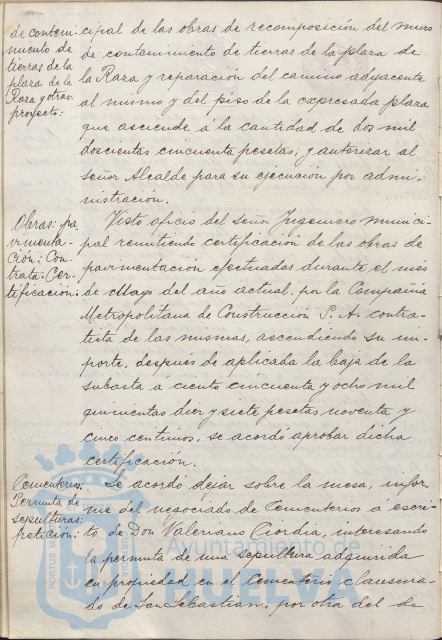 de conteni-
miento de
tierras de la
plaza de la
Raza y otros:
proyecto:
cipal de las obras de recomposición del muro
de contenimiento de tierras de la plaza de
la Raza y reparación del camino adyacente
al mismo y del piso de la expresada plaza
que asciende á la cantidad de dos mil
doscientas cincuenta pesetas; y autorizar al
señor Alcalde para su ejecución por admi-
nistración.
Obras: pa
vimenta-
ción: Con
trata: Cer-
tificación:
Visto oficio del señor Ingeniero munici-
pal remitiendo certificación de las obras de
pavimentación efectuadas durante el mes
de Mayo del año actual, por la Compañía
Metropolitana de Construcción S. A. contra-
tista de las mismas, ascendiendo su im-
porte, después de aplicada la baja de la
subasta a ciento cincuenta y ocho mil
quinientas diez y siete pesetas noventa y
cinco centimos, se acordó aprobar dicha
certificación.
Cementerios:
Permuta de
sepulturas:
petición:
Se acordó dejar sobre la mesa, infor-
me del negociado de Cementerios a escri-
to de Don Valeriano Ciordia, interesando
la permuta de una sepultura adquirida
en propiedad en el Cementerio clausura-
do de San Sebastián, por otra del de
HUELVA